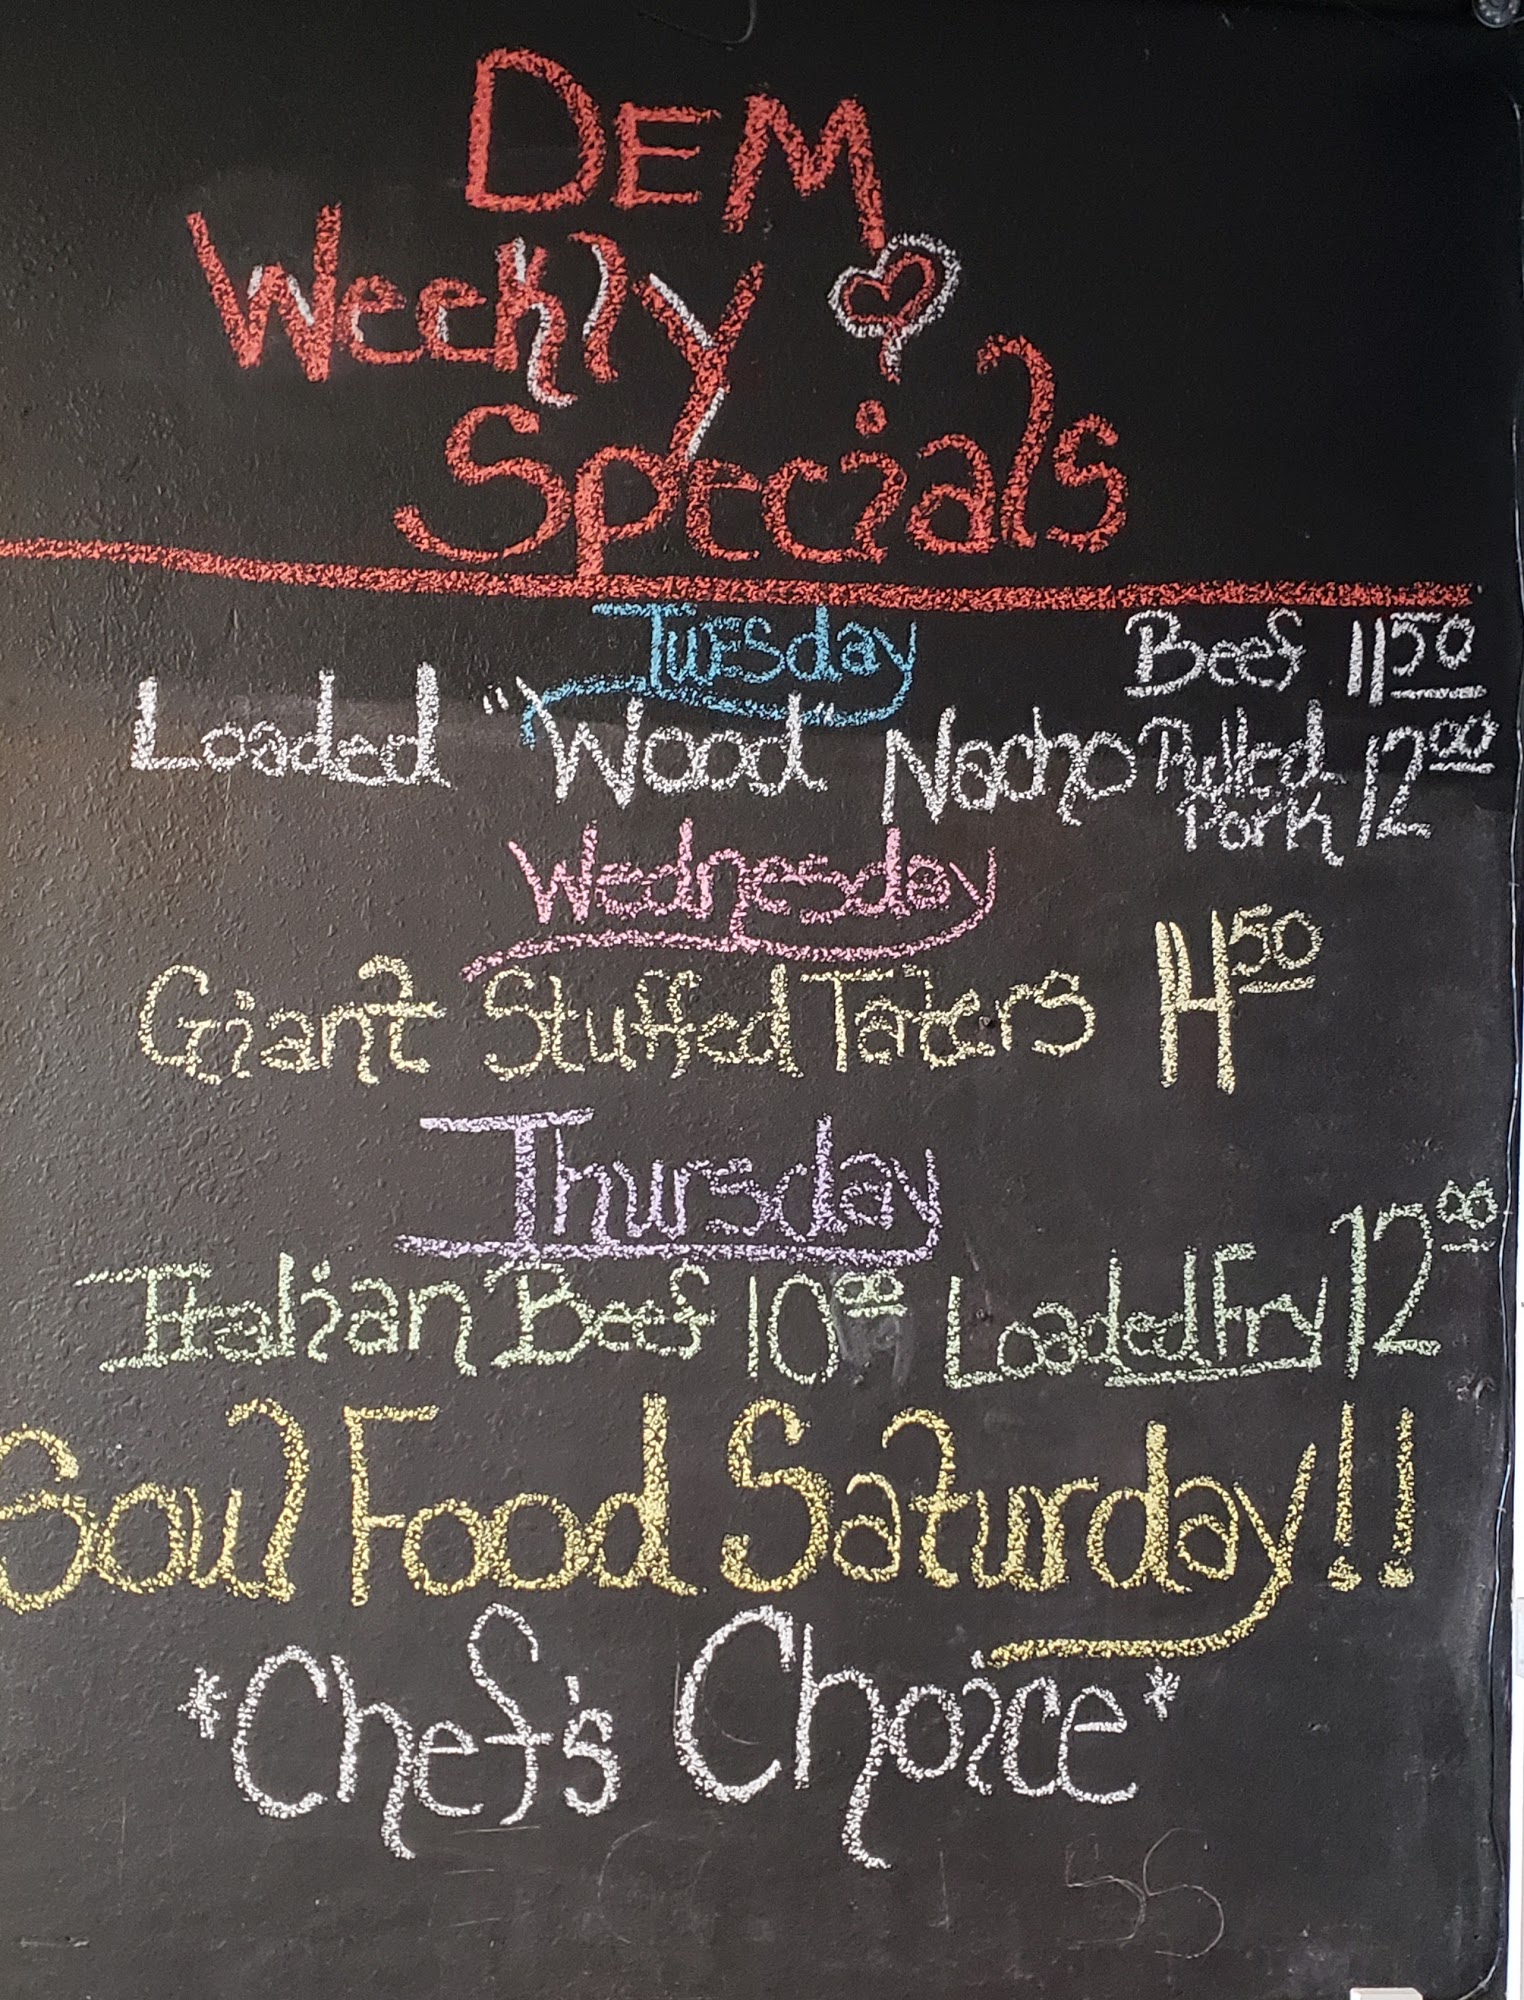 DEM
Weekly
Specials
Tuesday
Beef 11 50
Loaded "Wood" Nacho Pulled Pork 12 00
Wednesday
Giant Stuffed Taters 14 50
Thursday
Italian Beef 10 00 Loaded Fry 12 00
Soul Food Saturday!!
*Chef's Choice*